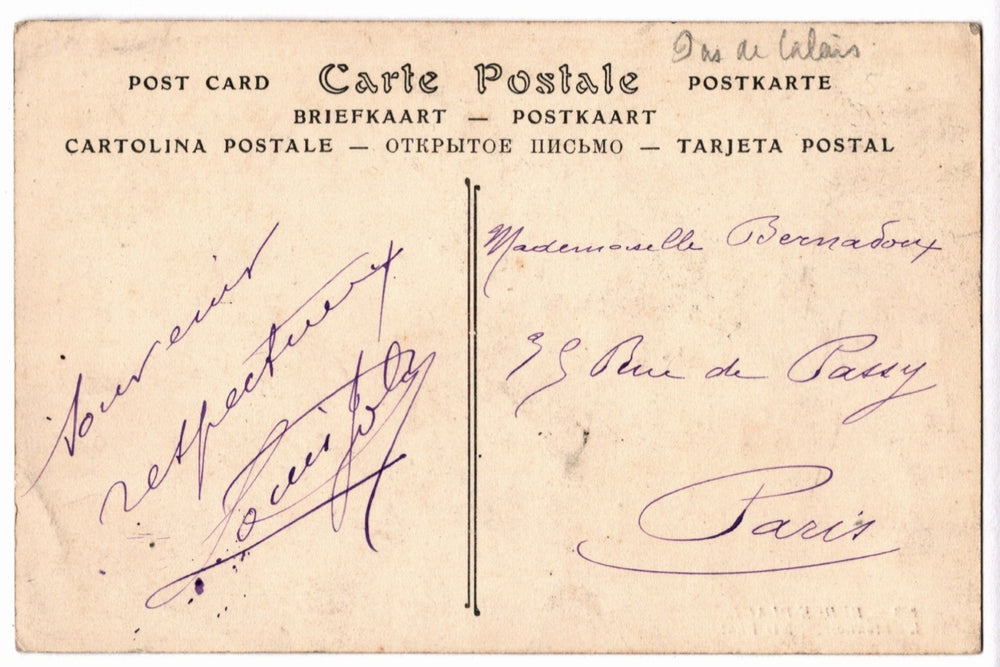 Pas de Calais
POST CARD Carte Postale POSTKARTE
BRIEFKAART — POSTKAART
CARTOLINA POSTALE — ОТКРЫТОЕ ПИСЬМО — TARJETA POSTAL
Souvenir
respectueux
Louis
Mademoiselle Bernadoux
35 Rue de Passy
Paris